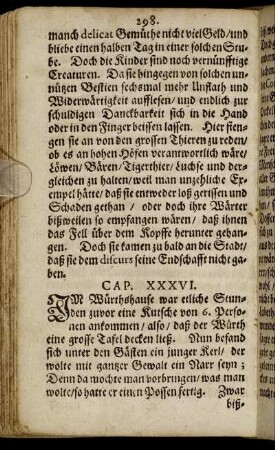 298.
manch delicat Gemüthe nicht viel Geld/ und
bliebe einen halben Tag in einer solchen Stu-
be. Doch die Kinder sind noch vernünfftige
Creaturen. Da sie hingegen von solchen un-
nützen Bestien sechsmal mehr Unflath und
Widerwärtigkeit aufflesen/ und endlich zur
schuldigen Danckbarkeit sich in die Hand
oder in den Finger beissen lassen. Hier fien-
gen sie an von den grossen Thieren zu reden/
ob es an hohen Höfen verantwortlich wäre/
Löwen/ Bären/ Tigerthier/ Luchse und der-
gleichen zu halten/ weil man unzehliche Ex-
empel hätte/ daß sie entweder loß gerissen und
Schaden gethan / oder doch ihre Wärter
bißweilen so empfangen wären/ daß ihnen
das Fell über dem Kopffe herunter gehan-
gen. Doch sie kamen zu bald an die Stadt/
daß sie dem discurs seine Endschafft nicht ga-
ben.
CAP. XXXVI.
IM Würthshause war etliche Stun-
den zuvor eine Kutsche von 6. Perso-
nen ankommen/ also/ daß der Würth
eine grosse Tafel decken ließ. Nun befand
sich unter den Gästen ein junger Kerl/ der
wolte mit gantzer Gewalt ein Narr seyn;
Denn da mochte man vorbringen/ was man
wolte/ so hatte er einen Possen fertig. Zwar
biß-